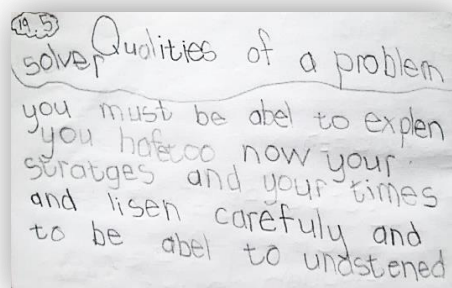 19.5
Qualities of a problem
solver
you must be abel to explen
you hafetoo now your
stratges and your times
and lisen carefuly and
to be abel to undastened